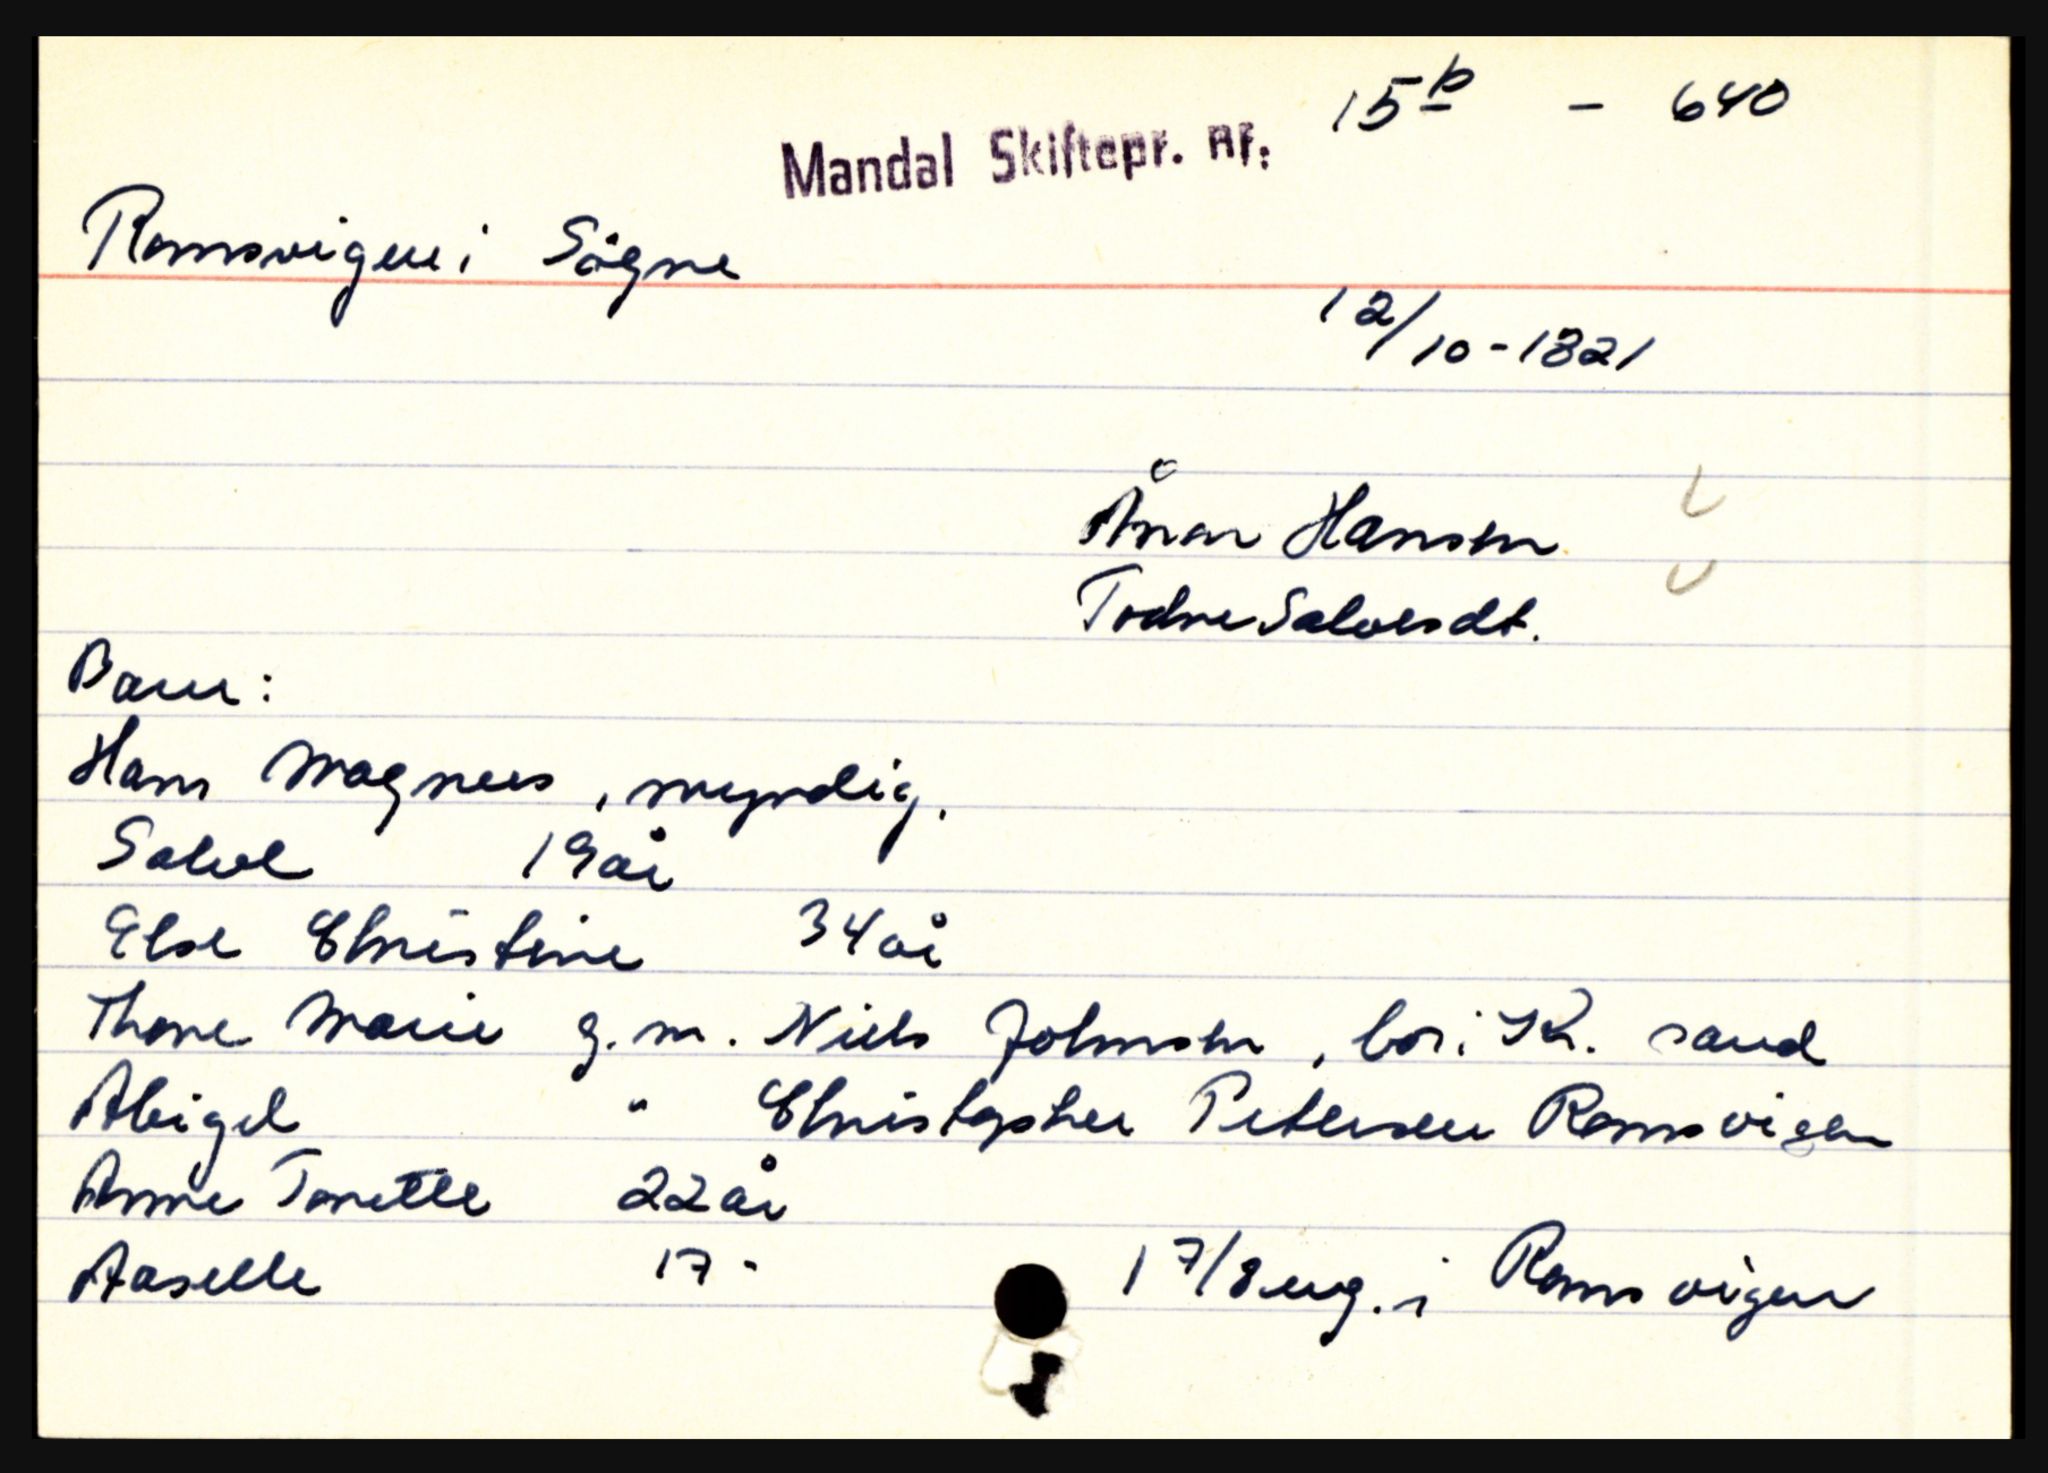 15b - 640
Mandal Skiftepr. nr:
Romsvigen i Sögne
12/10-1821
Ånon Hansen
Todne Salvesdt.
Barn:
Hans Magnus, myndig.
Salve 19 år
Else Christine 34 år
Thone Marie g.m. Niels Johnsen, bor i Kr. sand
Abigel " Christopher Petersen Romsvigen
Anne Tonette 22 år
Aaselle 17 - 17/8 eug. i Romsvigen